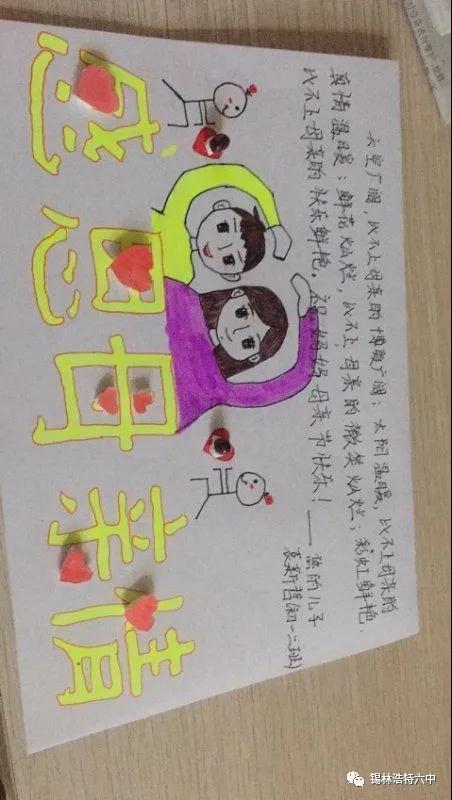 天空广阔,比不上母亲的博爱广阔;太阳温暖,比不上母亲的
真情温暖;鲜花灿烂,比不上母亲的微笑灿烂;彩虹鲜艳,
比不上母亲的快乐鲜艳.祝妈妈母亲节快乐!——您的儿子
新哲(初一二班)
感恩母亲情
锡林浩特六中